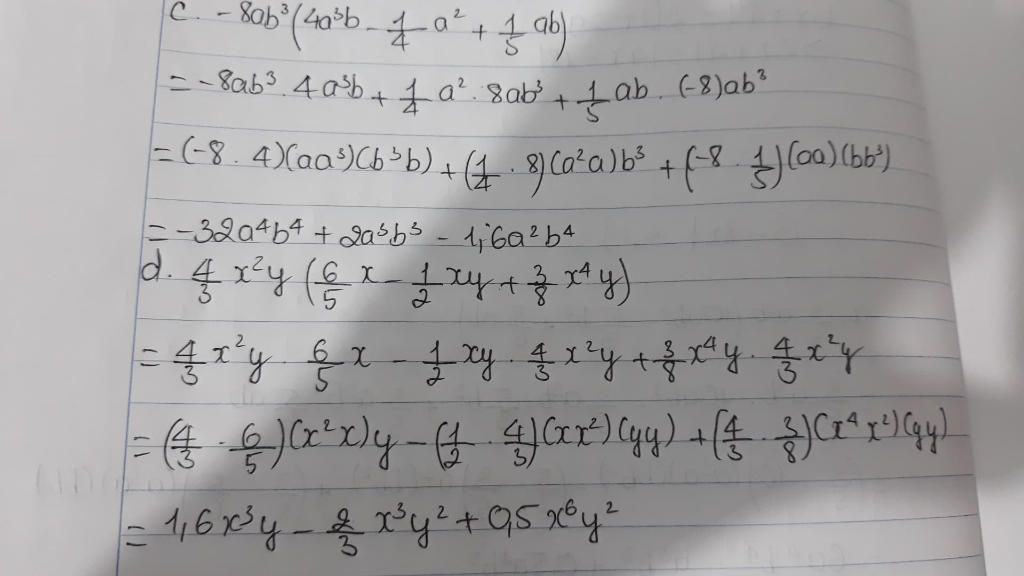 c. -8ab³(4a³b - 1/4 a² + 1/5 ab)
= -8ab³ . 4a³b + 1/4 a² . 8ab³ + 1/5 ab . (-8)ab³
= (-8 . 4)(aa³)(b³b) + (1/4 . 8)(a²a)b³ + (-8 . 1/5)(aa)(bb³)
= -32a⁴b⁴ + 2a³b³ - 1,6a²b⁴
d. 4/3 x²y (6/5 x - 1/2 xy + 3/8 x⁴y)
= 4/3 x²y 6/5 x - 1/2 xy . 4/3 x²y + 3/8 x⁴y . 4/3 x²y
= (4/3 . 6/5)(x²x)y - (1/2 . 4/3)(xx²)(yy) + (4/3 . 3/8)(x⁴x²)(yy)
= 1,6x³y - 2/3 x³y² + 0,5x⁶y²